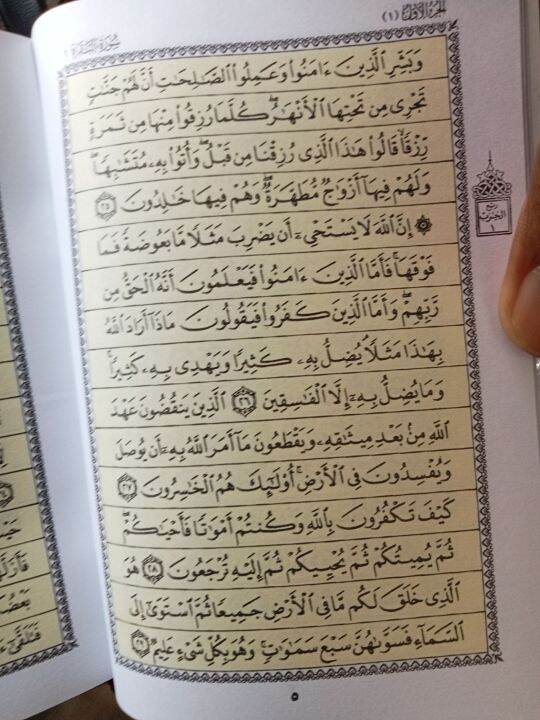 سُورَةُ البَقَرَةِ
الجُزْءُ الأَوَّلُ (١)
وَبَشِّرِ ٱلَّذِينَ ءَامَنُوا۟ وَعَمِلُوا۟ ٱلصَّـٰلِحَـٰتِ أَنَّ لَهُمْ جَنَّـٰتٍ
تَجْرِى مِن تَحْتِهَا ٱلْأَنْهَـٰرُ ۖ كُلَّمَا رُزِقُوا۟ مِنْهَا مِن ثَمَرَةٍ
رِّزْقًا ۙ قَالُوا۟ هَـٰذَا ٱلَّذِى رُزِقْنَا مِن قَبْلُ ۖ وَأُتُوا۟ بِهِۦ مُتَشَـٰبِهًا ۖ
وَلَهُمْ فِيهَآ أَزْوَٰجٌ مُّطَهَّرَةٌ ۖ وَهُمْ فِيهَا خَـٰلِدُونَ ٢٥
۞ إِنَّ ٱللَّهَ لَا يَسْتَحْىِۦٓ أَن يَضْرِبَ مَثَلًا مَّا بَعُوضَةً فَمَا
فَوْقَهَا ۚ فَأَمَّا ٱلَّذِينَ ءَامَنُوا۟ فَيَعْلَمُونَ أَنَّهُ ٱلْحَقُّ مِن
رَّبِّهِمْ ۖ وَأَمَّا ٱلَّذِينَ كَفَرُوا۟ فَيَقُولُونَ مَاذَآ أَرَادَ ٱللَّهُ
بِهَـٰذَا مَثَلًا ۘ يُضِلُّ بِهِۦ كَثِيرًا وَيَهْدِى بِهِۦ كَثِيرًا ۚ
وَمَا يُضِلُّ بِهِۦٓ إِلَّا ٱلْفَـٰسِقِينَ ٢٦ ٱلَّذِينَ يَنقُضُونَ عَهْدَ
ٱللَّهِ مِنۢ بَعْدِ مِيثَـٰقِهِۦ وَيَقْطَعُونَ مَآ أَمَرَ ٱللَّهُ بِهِۦٓ أَن يُوصَلَ
وَيُفْسِدُونَ فِى ٱلْأَرْضِ ۚ أُو۟لَـٰٓئِكَ هُمُ ٱلْخَـٰسِرُونَ ٢٧
كَيْفَ تَكْفُرُونَ بِٱللَّهِ وَكُنتُمْ أَمْوَٰتًا فَأَحْيَـٰكُمْ ۖ
ثُمَّ يُمِيتُكُمْ ثُمَّ يُحْيِيكُمْ ثُمَّ إِلَيْهِ تُرْجَعُونَ ٢٨ هُوَ
ٱلَّذِى خَلَقَ لَكُم مَّا فِى ٱلْأَرْضِ جَمِيعًا ثُمَّ ٱسْتَوَىٰٓ إِلَى
ٱلسَّمَآءِ فَسَوَّىٰهُنَّ سَبْعَ سَمَـٰوَٰتٍ ۚ وَهُوَ بِكُلِّ شَىْءٍ عَلِيمٌ ٢٩
رُبْع
الحِزْب
١
٥